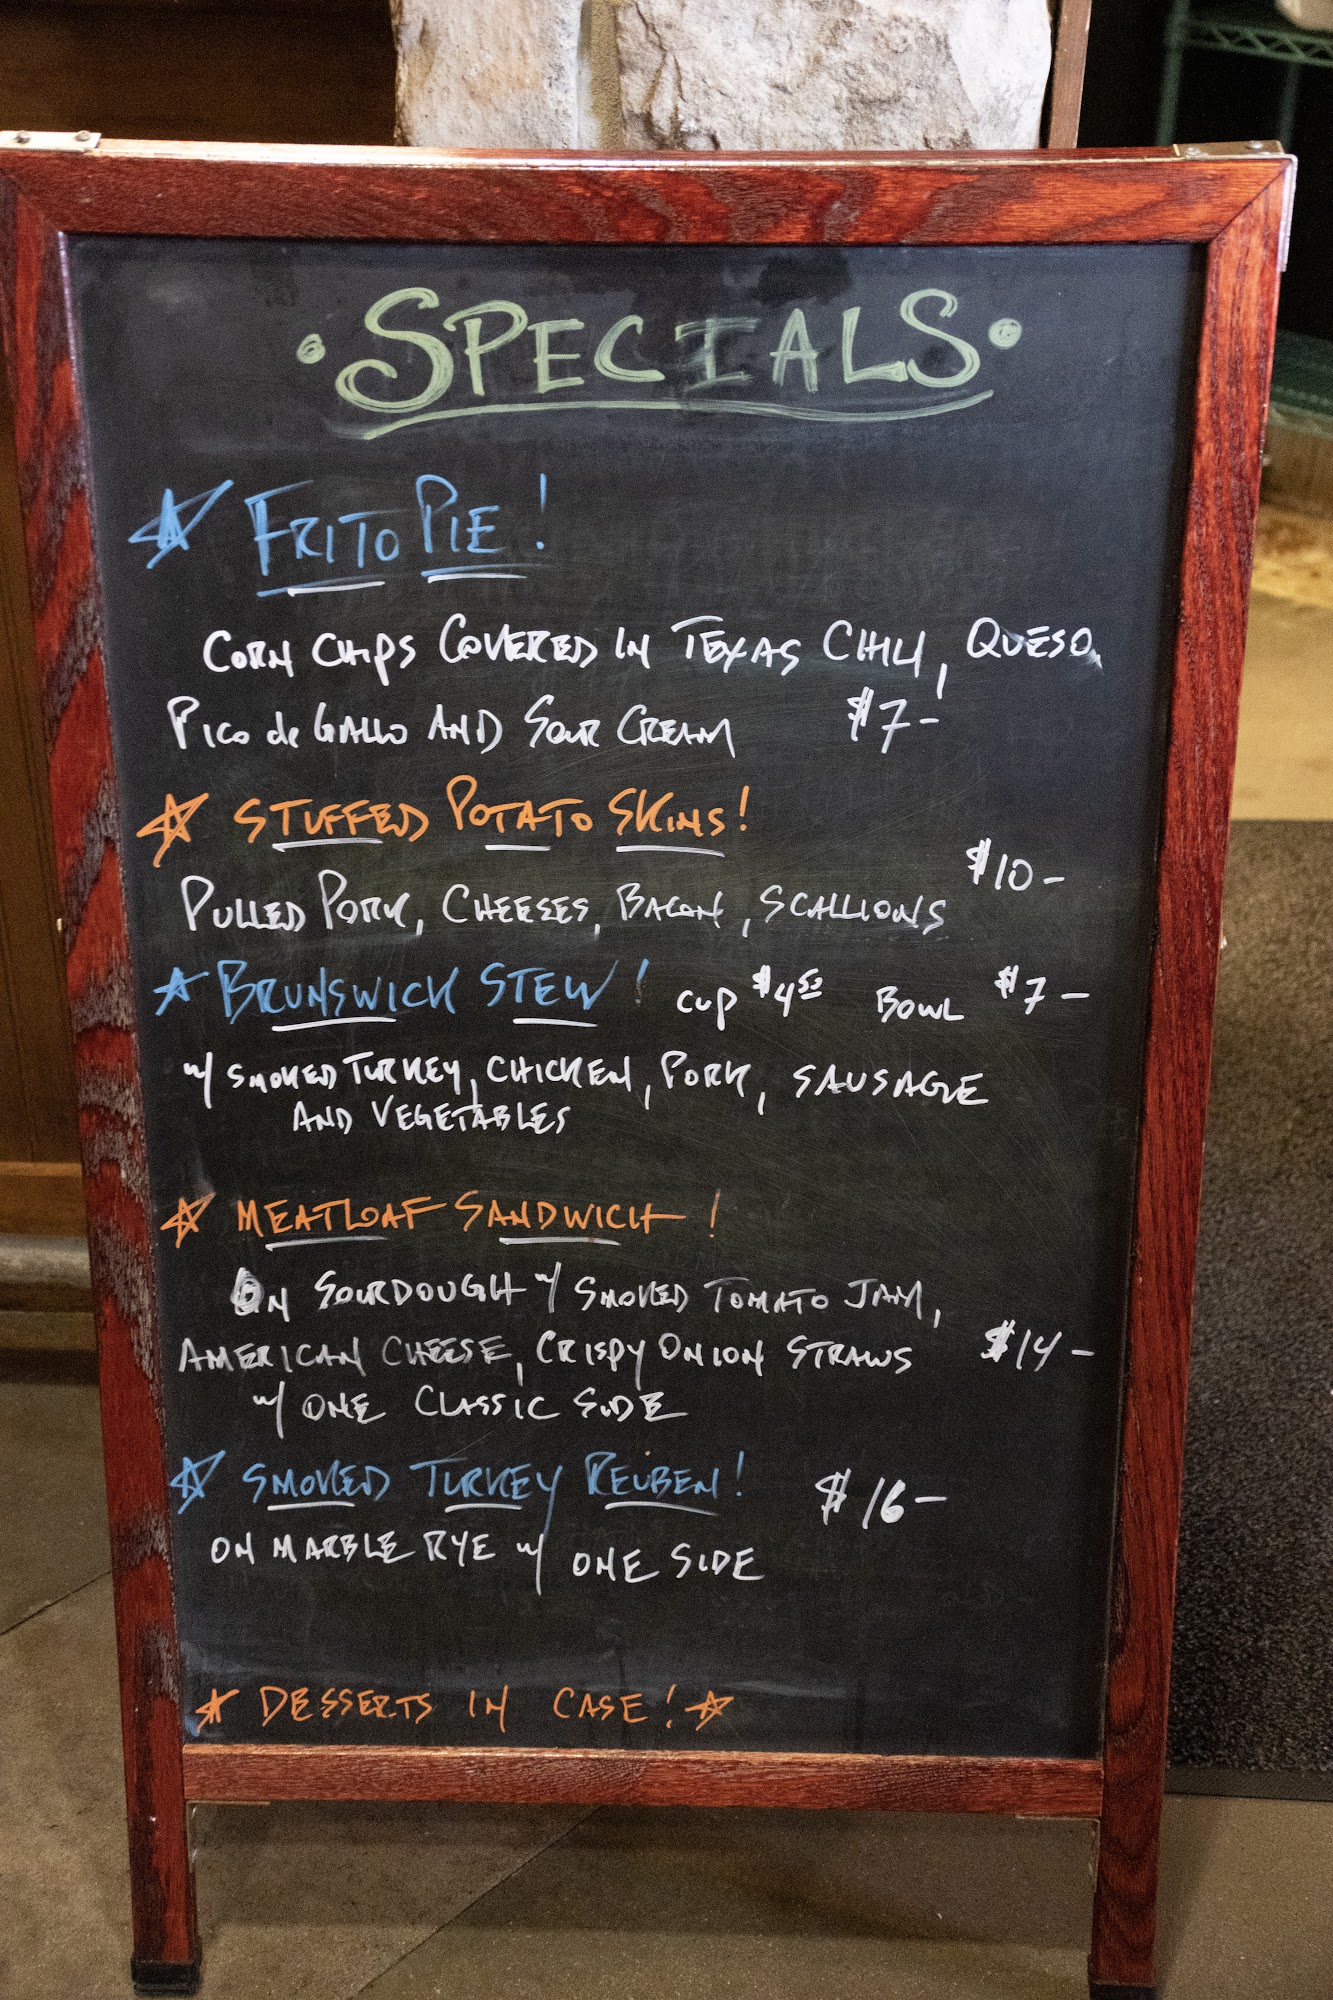 • SPECIALS •
FRITO PIE!
CORN CHIPS COVERED IN TEXAS CHILI, QUESO,
PICO de GALLO AND SOUR CREAM $7-
STUFFED POTATO SKINS!
PULLED PORK, CHEESES, BACON, SCALLIONS $10-
BRUNSWICK STEW! CUP $4.50 BOWL $7-
w/ SMOKED TURKEY, CHICKEN, PORK, SAUSAGE
AND VEGETABLES
MEATLOAF SANDWICH!
ON SOURDOUGH w/ SMOKED TOMATO JAM,
AMERICAN CHEESE, CRISPY ONION STRAWS $14-
w/ ONE CLASSIC SIDE
SMOKED TURKEY REUBEN! $16-
ON MARBLE RYE w/ ONE SIDE
DESSERTS IN CASE!